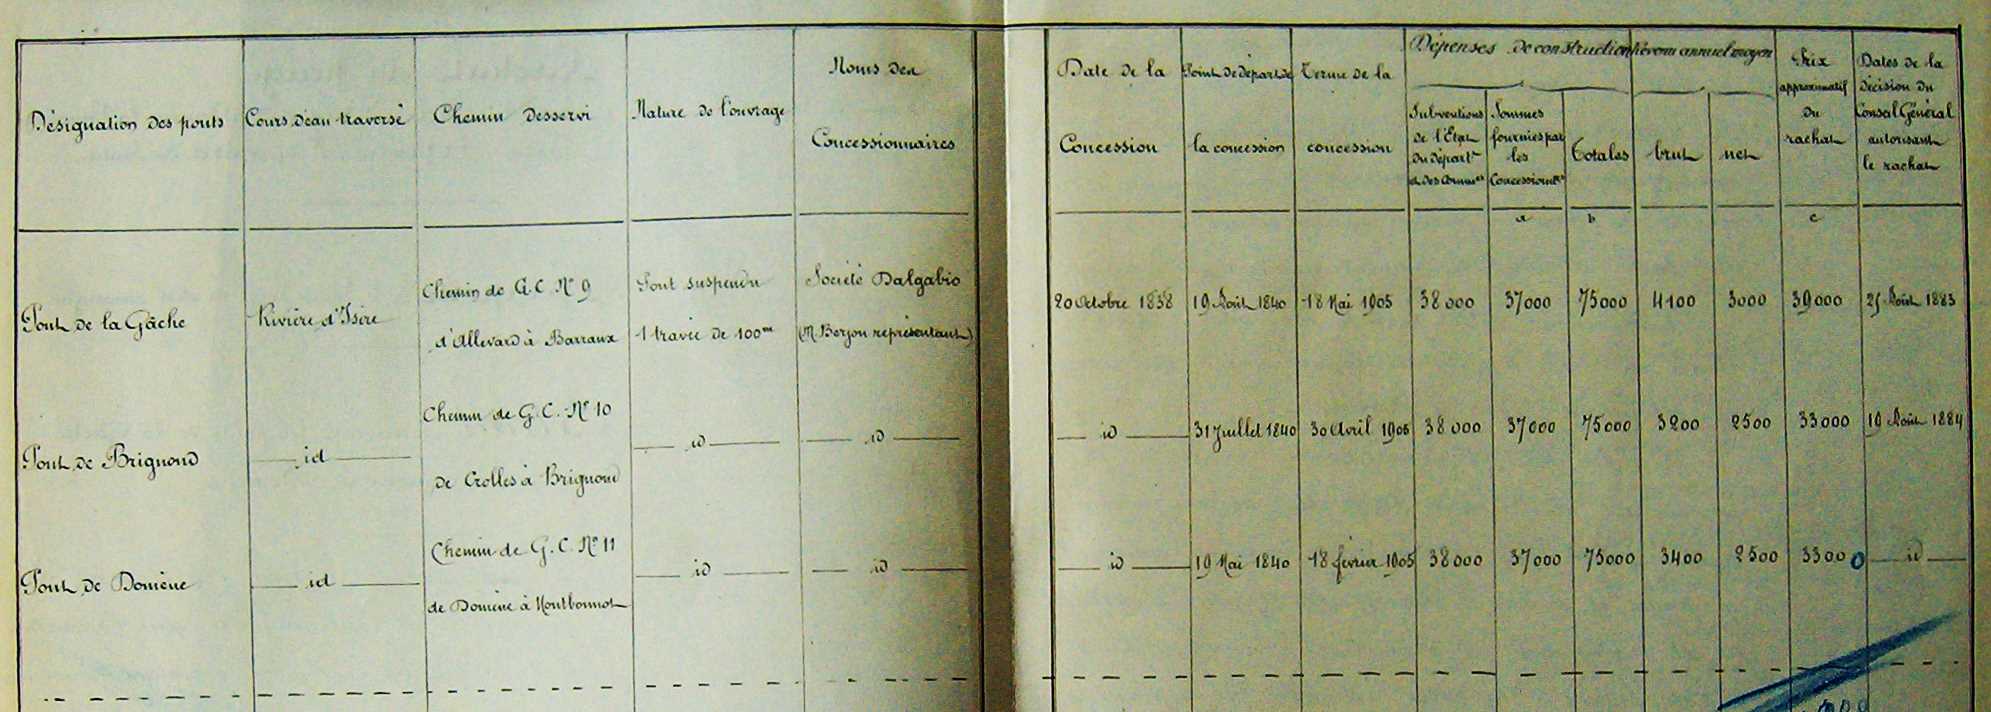 Désignation des ponts
Cours d'eau traversé
Chemin desservi
Nature de l'ouvrage
Noms des
Concessionnaires
Date de la
Concession
Point de départ de
la concession
Terme de la
concession
Dépenses de construction
Subventions
de l'Etat
du départt
et des Commes
Sommes
fournies par
les
Concessionres
Totales
Revenu annuel moyen
brut
net
Prix
approximatif
du
rachat
Dates de la
décision du
Conseil Général
autorisant
le rachat
a
b
c
Pont de la Gâche
Rivière d'Isère
Chemin de G.C. No 9
d'Allevard à Barraux
Pont suspendu
1 travée de 100m
Société Dalgabio
(M. Berjon représentant)
20 Octobre 1838
19 Août 1840
18 Mai 1905
38 000
37 000
75 000
4100
3000
39 000
Août 1883
Pont de Brignoud
id
Chemin de G.C. No 10
de Crolles à Brignoud
id
id
id
31 Juillet 1840
30 Avril 1905
38 000
37 000
75 000
3200
2500
33 000
19 Août 1884
Pont de Domène
id
Chemin de G.C. No 11
de Domène à Montbonnot
id
id
id
19 Mai 1840
18 février 1905
38 000
37 000
75 000
3400
2500
33 000
id